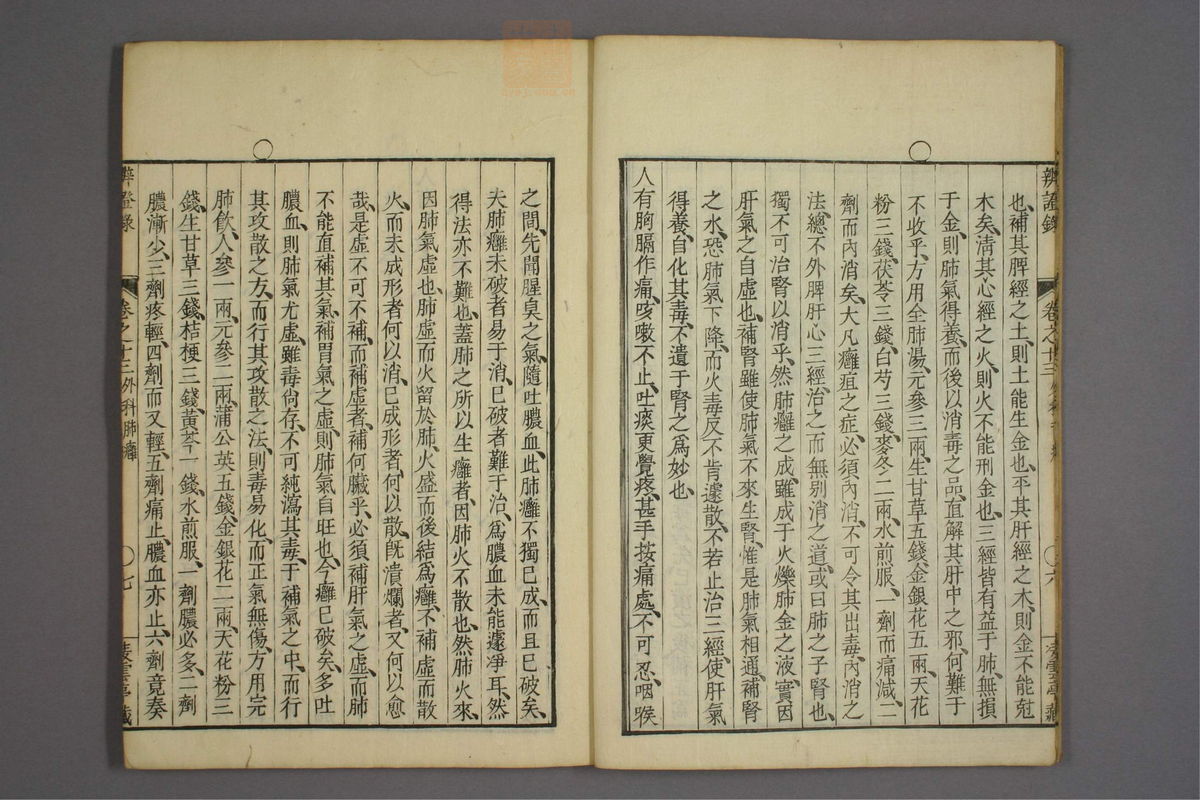 辨證錄 卷之十三 外科 六 菱雲亭藏
也補其脾經之土則土能生金也平其肝經之木則金不能尅
木矣清其心經之火則火不能刑金也三經皆有益于肺無損
于金則肺氣得養而後以消毒之品直解其肝中之邪何難于
不收乎方用全肺湯元參三兩生甘草五錢金銀花五兩天花
粉三錢茯苓三錢白芍三錢麥冬二兩水煎服一劑而痛減二
劑而內消矣大凡癰疽之症必須內消不可令其出毒內消之
法總不外脾肝心三經治之而無别消之道或曰肺之子腎也
獨不可治腎以消乎然肺癰之成雖成于火爍肺金之液實因
肝氣之自虛也補腎雖使肺氣不來生腎惟是肺氣相通補腎
之水恐肺氣下降而火毒反不肯遽散不若止治三經使肝氣
得養自化其毒不遺于腎之爲妙也
人有胸膈作痛咳嗽不止吐痰更覺疼甚手按痛處不可忍咽喉
之間先聞腥臭之氣隨吐膿血此肺癰不獨已成而且已破矣
夫肺癰未破者易于消已破者難于治爲膿血未能遽凈耳然
得法亦不難也蓋肺之所以生癰者因肺火不散也然肺火來
因肺氣虛也肺虛而火留於肺火盛而後結爲癰不補虛而散
火而未成形者何以消已成形者何以散旣潰爛者又何以愈
哉是虛不可不補而補虛者補何臟乎必須補肝氣之虛而肺
不能直補其氣補胃氣之虛則肺氣自旺也今癰已破矣多吐
膿血則肺氣尤虛雖毒尙存不可純瀉其毒于補氣之中而行
其攻散之方而行其攻散之法則毒易化而正氣無傷方用完
肺飲人參一兩元參二兩蒲公英五錢金銀花二兩天花粉三
錢生甘草三錢桔梗三錢黃芩一錢水煎服一劑膿必多二劑
膿漸少三劑疼輕四劑而又輕五劑痛止膿血亦止六劑竟奏
辨證錄 卷之十三 外科 肺癰 七 菱雲亭藏